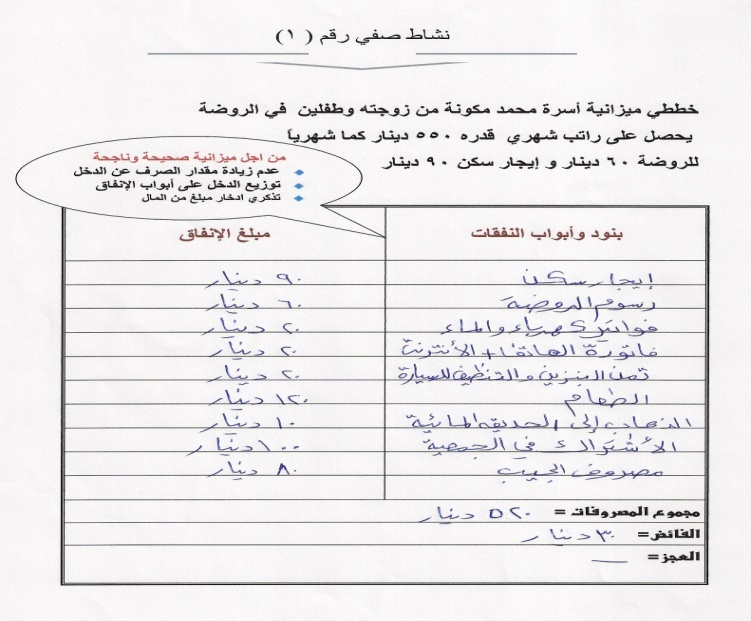 نشاط صفي رقم ( ١ )
خططي ميزانية أسرة محمد مكونة من زوجته وطفلين في الروضة
يحصل على راتب شهري قدره ٥٥٠ دينار كما شهرياً
للروضة ٦٠ دينار و إيجار سكن ٩٠ دينار
من اجل ميزانية صحيحة وناجحة
عدم زيادة مقدار الصرف عن الدخل
توزيع الدخل على أبواب الإنفاق
تذكري ادخار مبلغ من المال
بنود وأبواب النفقات مبلغ الإنفاق
إيجار سكن ٩٠ دينار
رسوم الروضة ٦٠ دينار
فواتير كهرباء والماء ٢٠ دينار
فاتورة الهاتف + الأنترنت ٢٠ دينار
ثمن البنزين والتنظيف للسيارة ٢٠ دينار
الطعام ١٢٠ دينار
الذهاب إلى الحديقة المائية ١٠ دينار
الأشتراك في الجمعية ١٠٠ دينار
مصروف الجيب ٨٠ دينار
مجموع المصروفات = ٥٢٠ دينار
الفائض= ٣٠ دينار
العجز= —